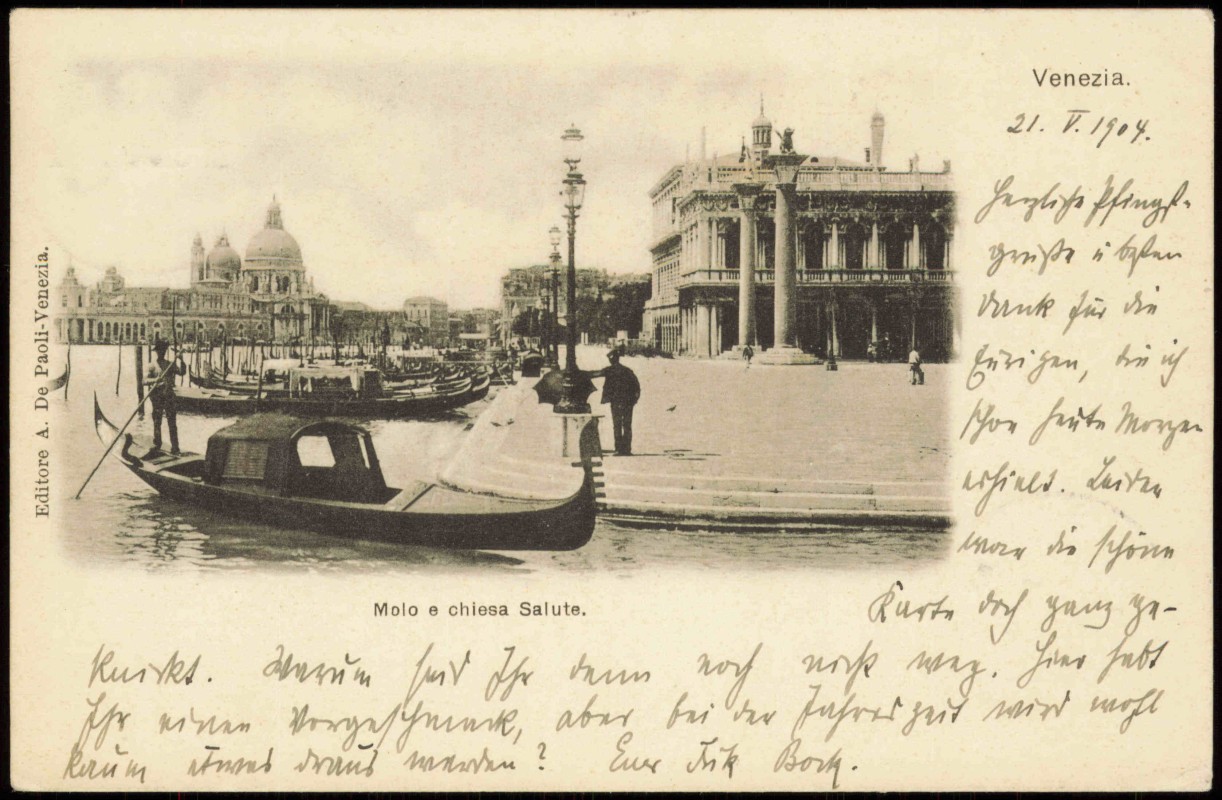 Venezia.
21. V. 1904.
Herzliche Pfingst-
grüße u besten
Dank für die
Eurigen, die ich
schon heute Morgen
erhielt. Leider
war die schöne
Karte doch ganz ge-
knickt. Warum seid Ihr denn noch nicht weg. Hier habt
Ihr einen Vorgeschmack, aber bei der Jahreszeit wird wohl
kaum etwas draus werden? Euer
Molo e chiesa Salute.
Editore A. De Paoli-Venezia.